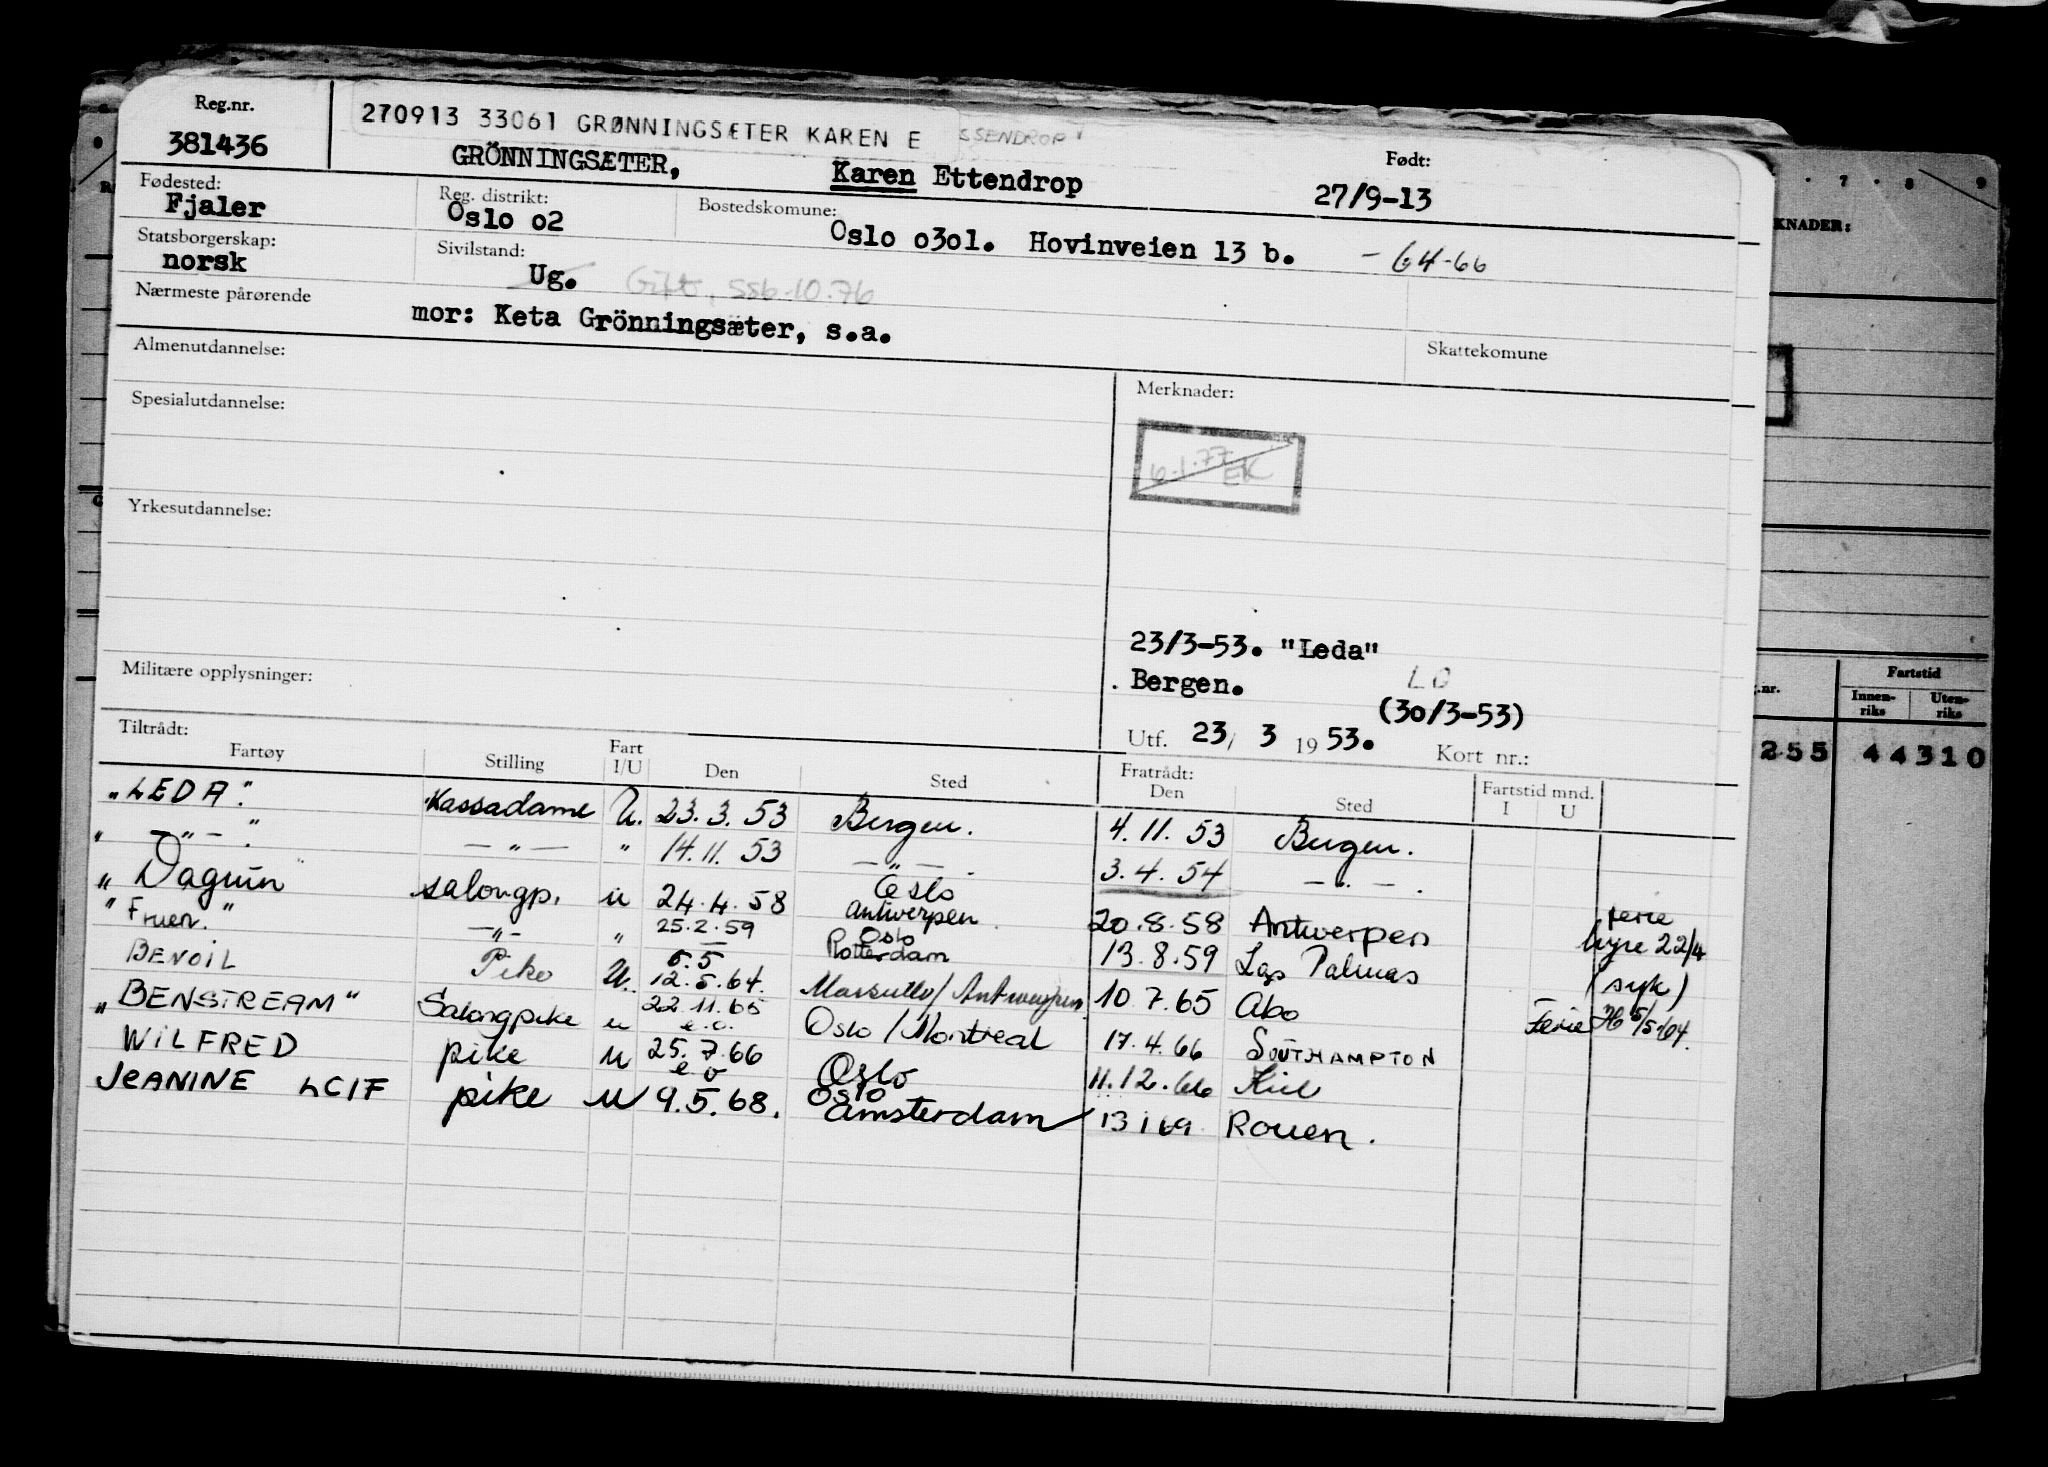 Reg.nr.
381436
270913 33061 GRØNNINGSÆTER KAREN E
SSENDROP
GRÖNNINGSÆTER, Karen Ettendrop
Født:
27/9-13
Fødested:
Fjaler
Reg. distrikt:
Oslo o2
Bostedskomune:
Oslo o3o1. Hovinveien 13 b. - 64-66
Statsborgerskap:
norsk
Sivilstand:
Ug. Gift, SSB 10.76
Nærmeste pårørende
mor: Keta Grönningsæter, s.a.
Skattekomune
Almenutdannelse:
Spesialutdannelse:
Yrkesutdannelse:
Militære opplysninger:
Merknader:
6-1.77 EK
23/3-53. "Leda"
Bergen.
LO
(30/3-53)
Utf. 23, 3 1953. Kort nr.:
Tiltrådt: Fratrådt:
Fartøy Stilling Fart I/U Den Sted Den Sted Fartstid mnd. I U
"LEDA". Kassadame U. 23.3.53 Bergen. 4.11.53 Bergen.
" — " — ". — " — " 14.11.53 — " — . 3.4.54 — " — .
" Dagrun salongp. u 24.4.58 Oslo Antwerpen 20.8.58 Antwerpen ferie
" Fruen." — " — " 25.2.59 Oslo Rotterdam 13.8.59 Las Palmas hyre 22/4
BENOIL Pike U. 5.5 12.5.64. Marseille/Antwerpen 10.7.65 Abo (syk)
"BENSTREAM" Salongpike u 22.11.65 e.o. Oslo/Montreal 17.4.66 SOUTHAMPTON Ferie 5/5-64.
WILFRED pike u 25.7.66 e o Oslo 11.12.66 Kiel
JEANINE LCIF pike u 9.5.68. Oslo Amsterdam 13 1 69 Rouen.
7 8 9
KNADER:
Fartstid
Innen-riks Uten-riks
.nr.
255 44310